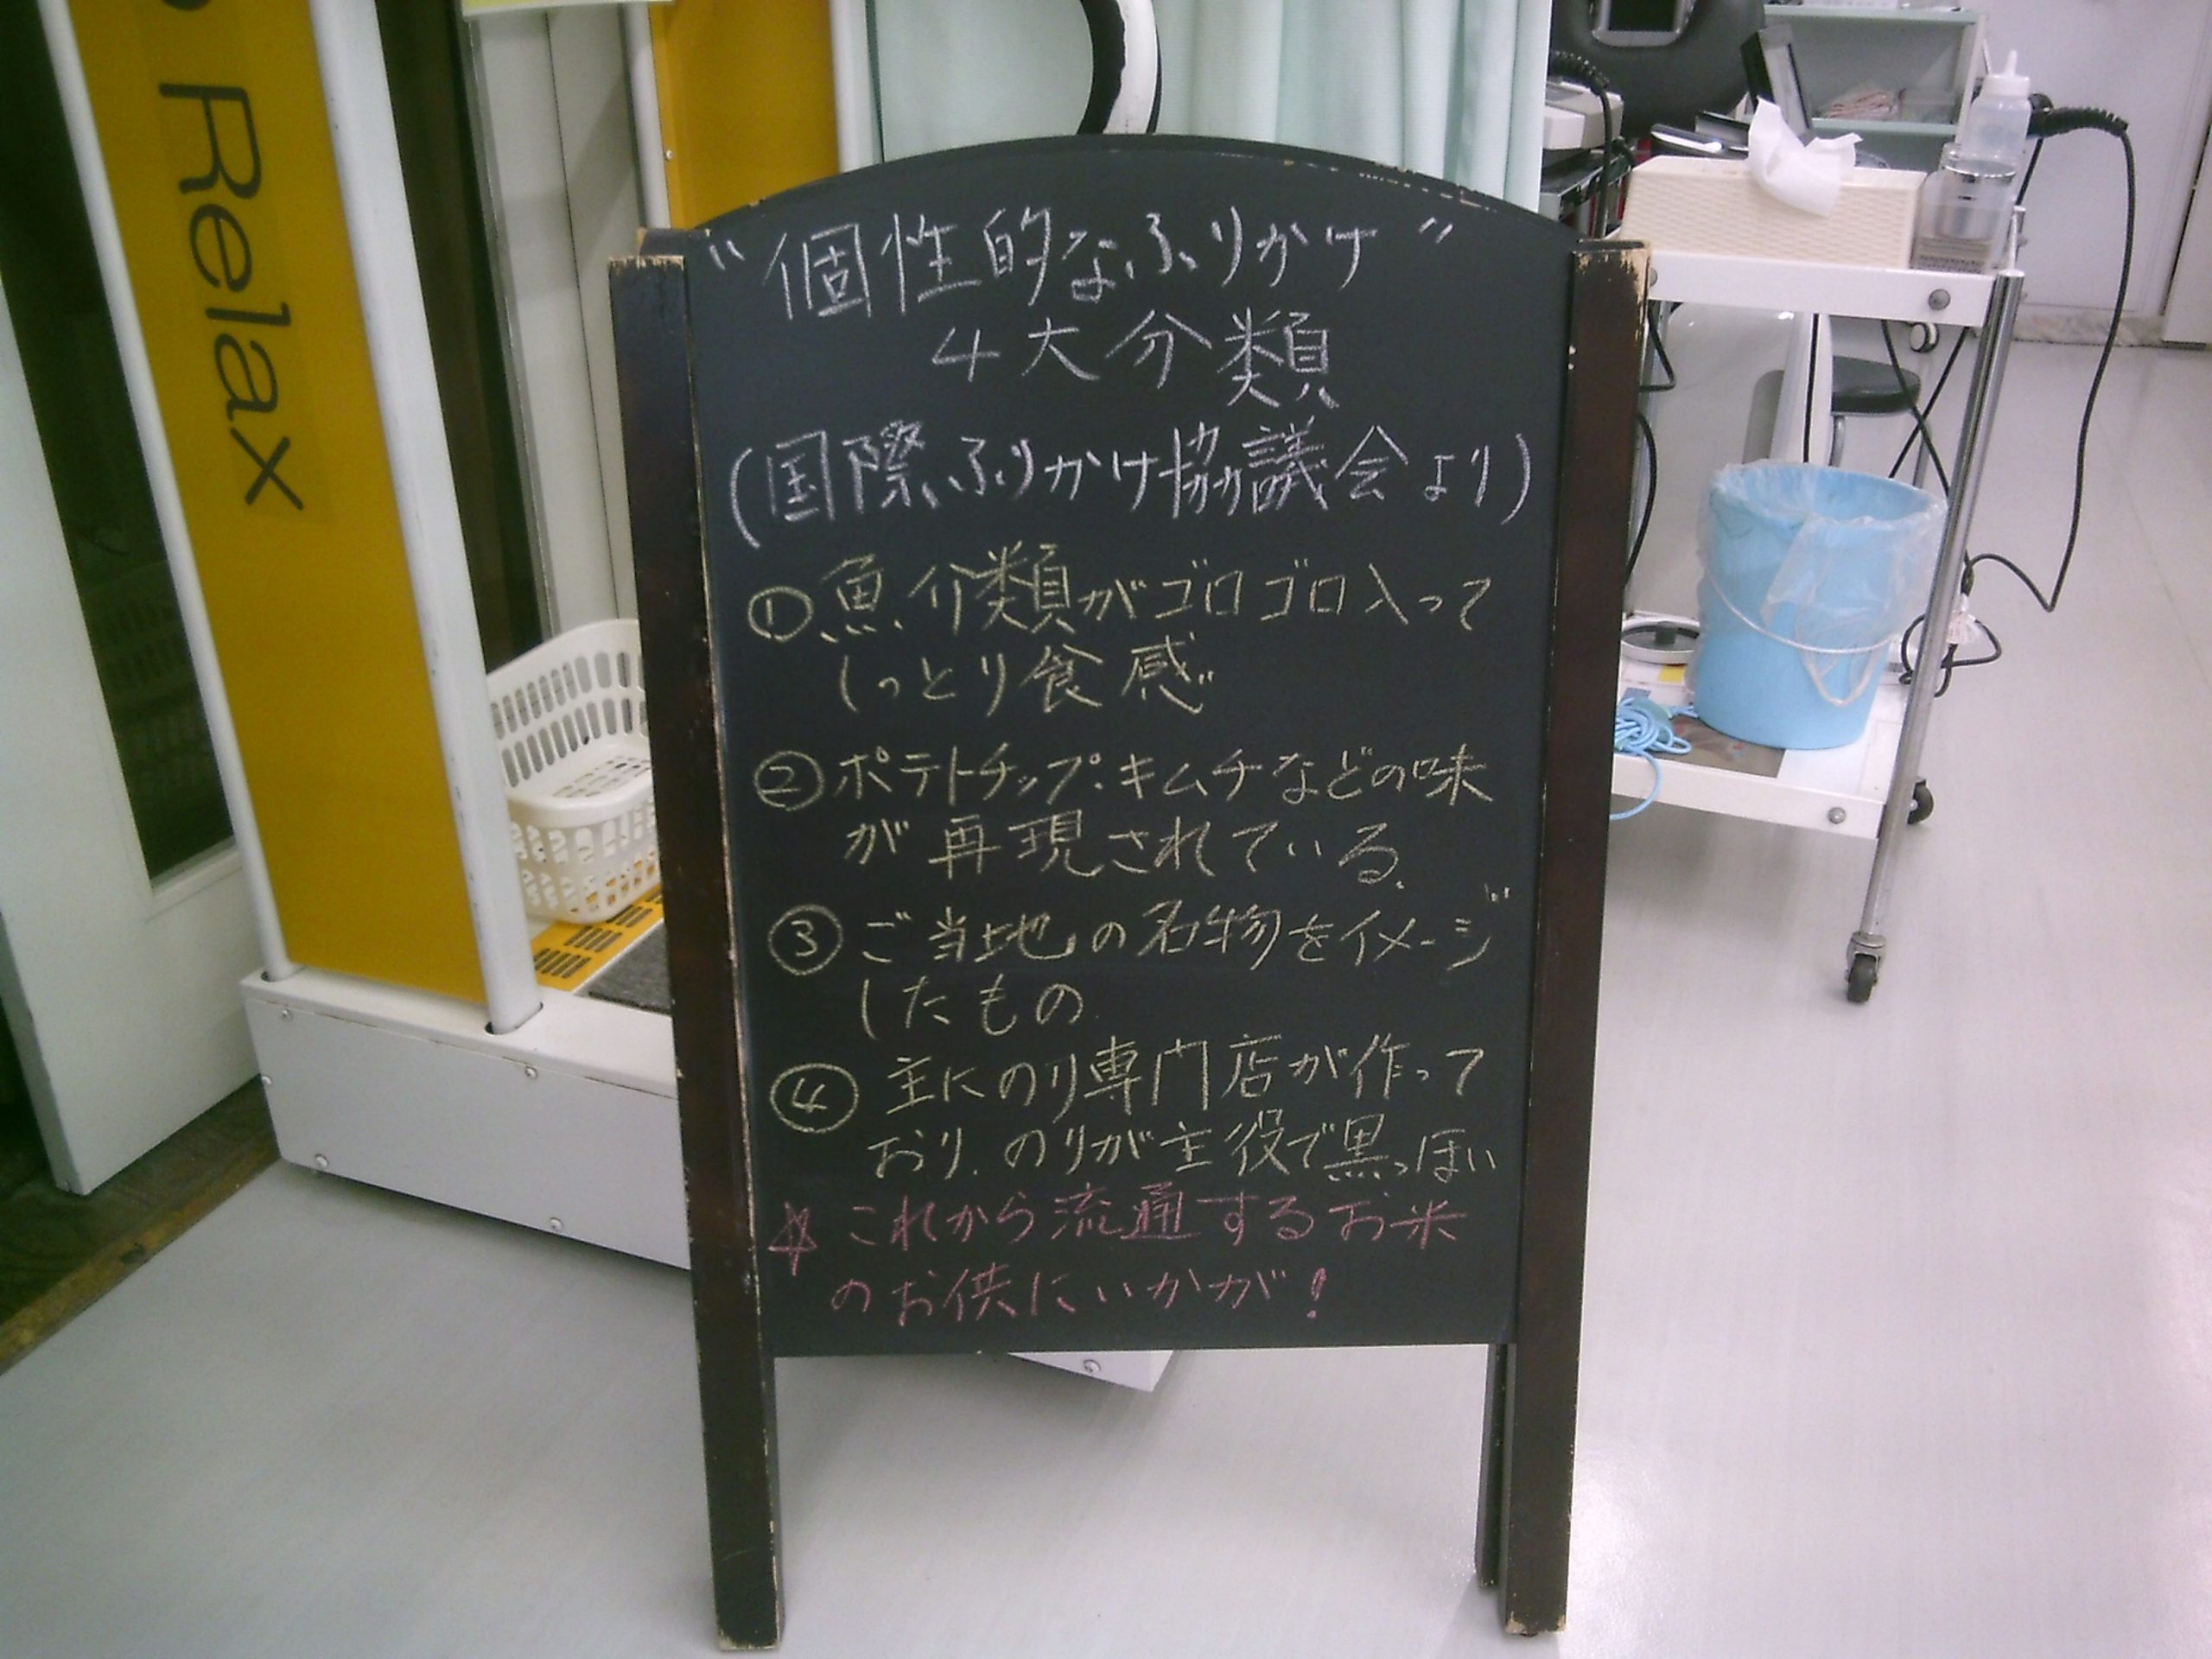 Relax
"個性的なふりかけ"
4大分類
(国際ふりかけ協議会より)
①魚介類がゴロゴロ入って
しっとり食感
②ポテトチップ・キムチなどの味
が再現されている。
③ご当地の名物をイメージ
したもの
④主にのり専門店が作って
おり、のりが主役で黒っぽい
☆これから流通するお米
のお供にいかが!